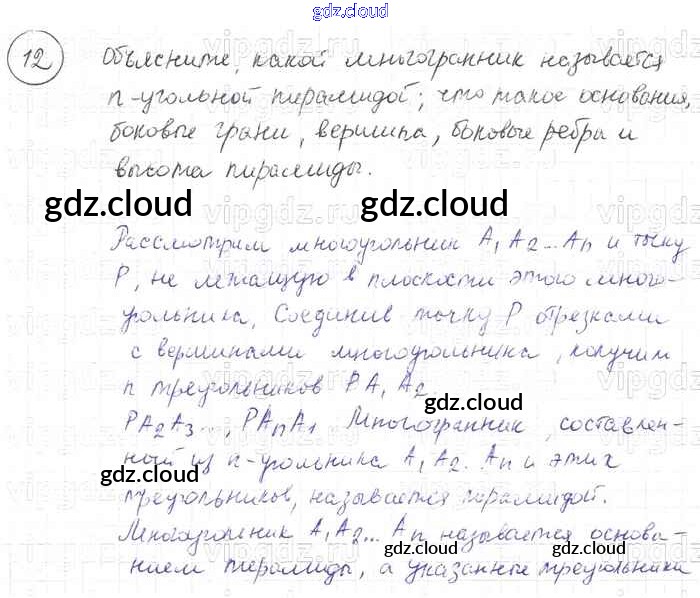 gdz.cloud
12 Объясните, какой многогранник называется
n-угольной пирамидой; что такое основания,
боковые грани, вершина, боковые ребра и
высота пирамиды.
gdz.cloud gdz.cloud
Рассмотрим многоугольник A₁A₂...Aₙ и точку
P, не лежащую в плоскости этого много-
угольника. Соединив точку P отрезками
с вершинами многоугольника, получим
n треугольников PA₁A₂
gdz.cloud
PA₂A₃..., PAₙA₁. Многогранник, составлен-
ный из n-угольника A₁A₂..Aₙ и этих
gdz.cloud
треугольников, называется пирамидой.
Многоугольник A₁A₂...Aₙ называется основа-
gdz.cloud gdz.cloud
нием пирамиды, а указанные треугольники